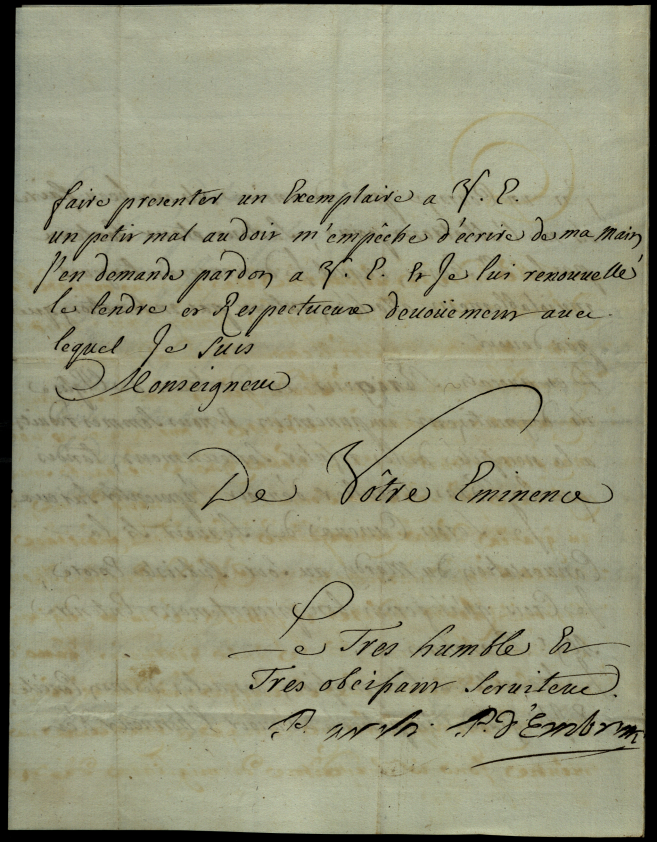 faire presenter un Exemplaire a V. E.
un petit mal au doit m'empêche d'écrire de ma main
J'en demande pardon a V. E. Et Je lui renouvelle
le tendre et Respectueux devoüement avec
lequel Je suis
Monseigneur
De Vôtre Eminence
Le Tres humble Et
Tres obeissant serviteur.
P. d'Embrun